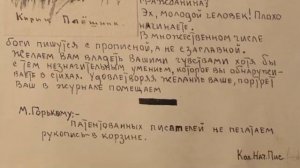 Кирик Паяшник.
Гражданину
Эх, молодой человек! Плохо
начинаете.
В множественном числе
боги пишутся с прописной, а не с заглавной.
Желаем вам владеть вашими чувствами хотя бы
с тем незначительным умением, которое вы обнаружи-
ваете в стихах. Удовлетворяя желание ваше, портрет
ваш в журнале помещаем
М. Горькому:-
Патентованных писателей не печатаем
рукопись в корзине.
Кол. Нат. Пис.